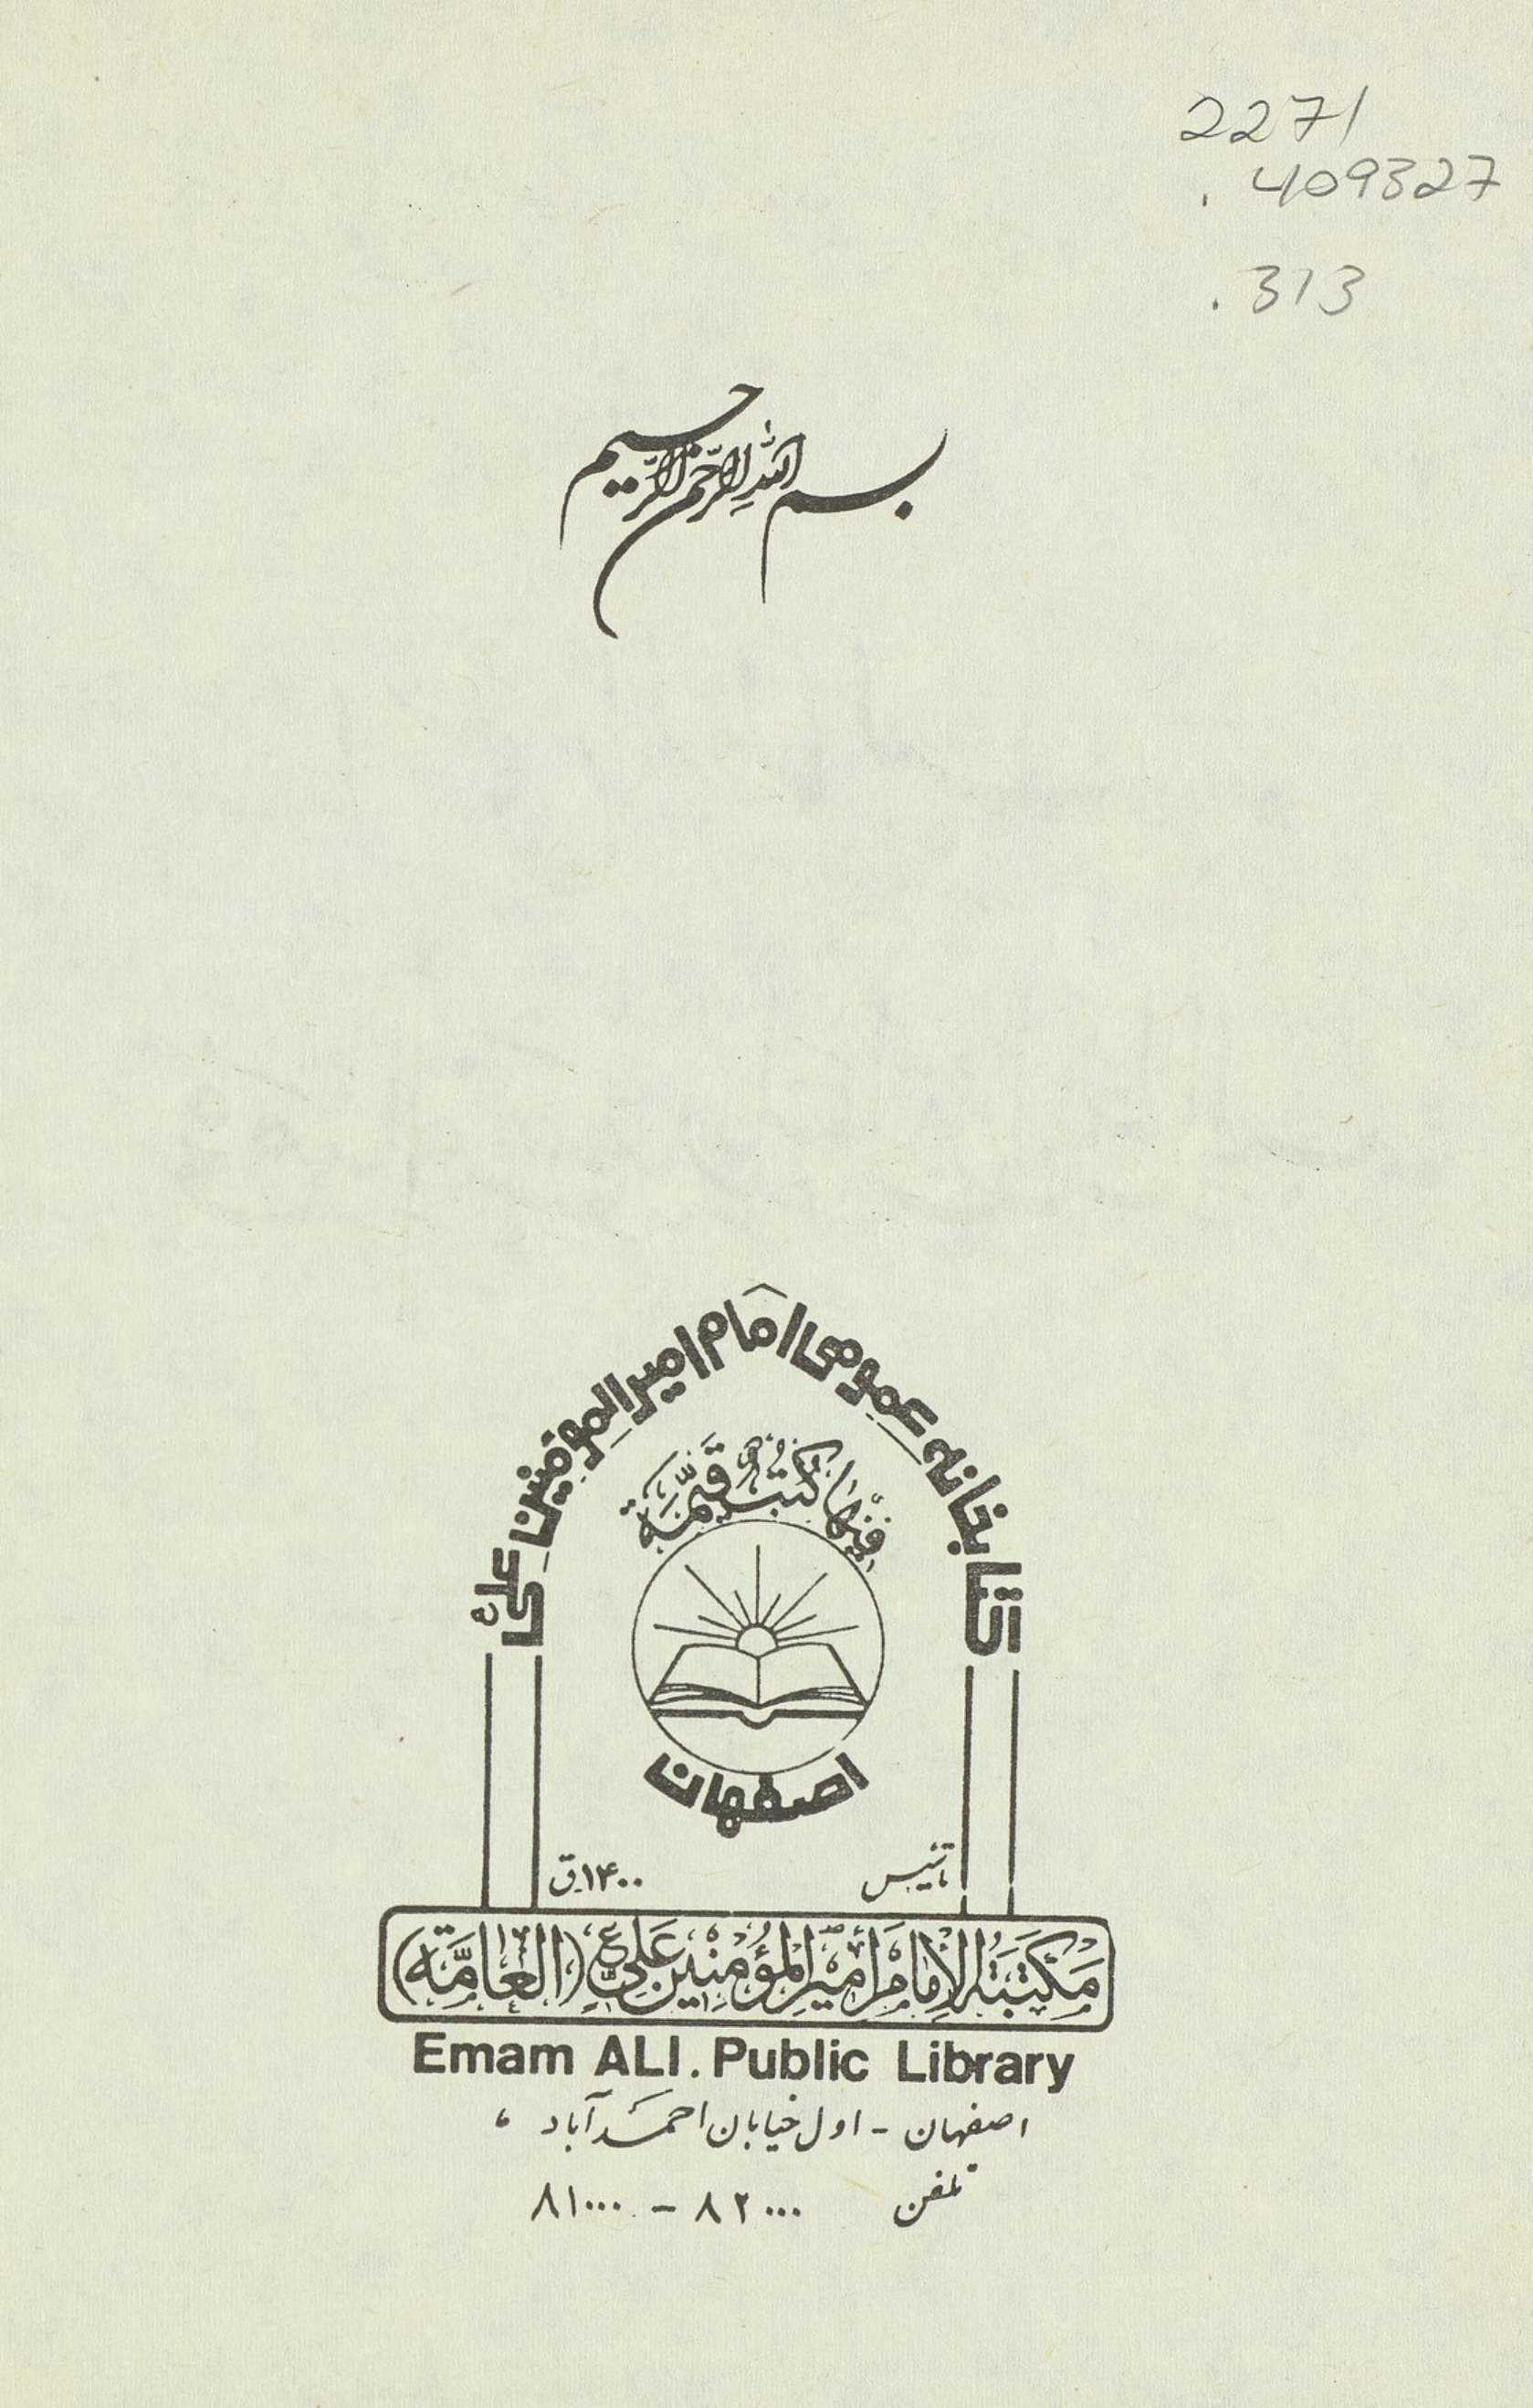 2271
.409327
.313
بسم الله الرحمن الرحيم
كتابخانه عمومى امام اميرالمومنين على ع
فِيْهَا كُتُبٌ قَيِّمَة
اصفهان
تأسیس ۱۴۰۰ق
مَكْتَبَةُ الْإِمَامِ أَمِيْرِ الْمُؤْمِنِيْنَ عَلِيٍّ ع (الْعَامَّة)
Emam ALI. Public Library
اصفهان - اول خیابان احمدآباد ،
تلفن ۸۲۰۰۰ - ۸۱۰۰۰